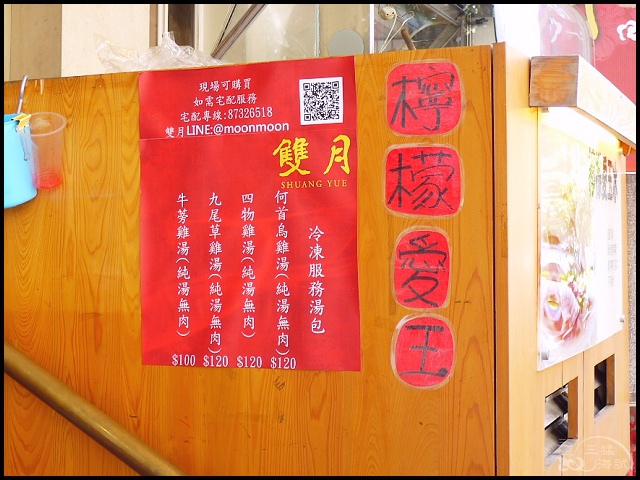 現場可購買
如需宅配服務
宅配專線:87326518
雙月LINE:@moonmoon
雙月
SHUANG YUE
冷凍服務湯包
何首烏雞湯(純湯無肉)
$120
四物雞湯(純湯無肉)
$120
九尾草雞湯(純湯無肉)
$120
牛蒡雞湯(純湯無肉)
$100
檸
檬
愛
王